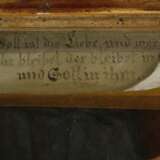 Gott ist die Liebe, und wer
bleibet der bleibet in
und Gott in ihm